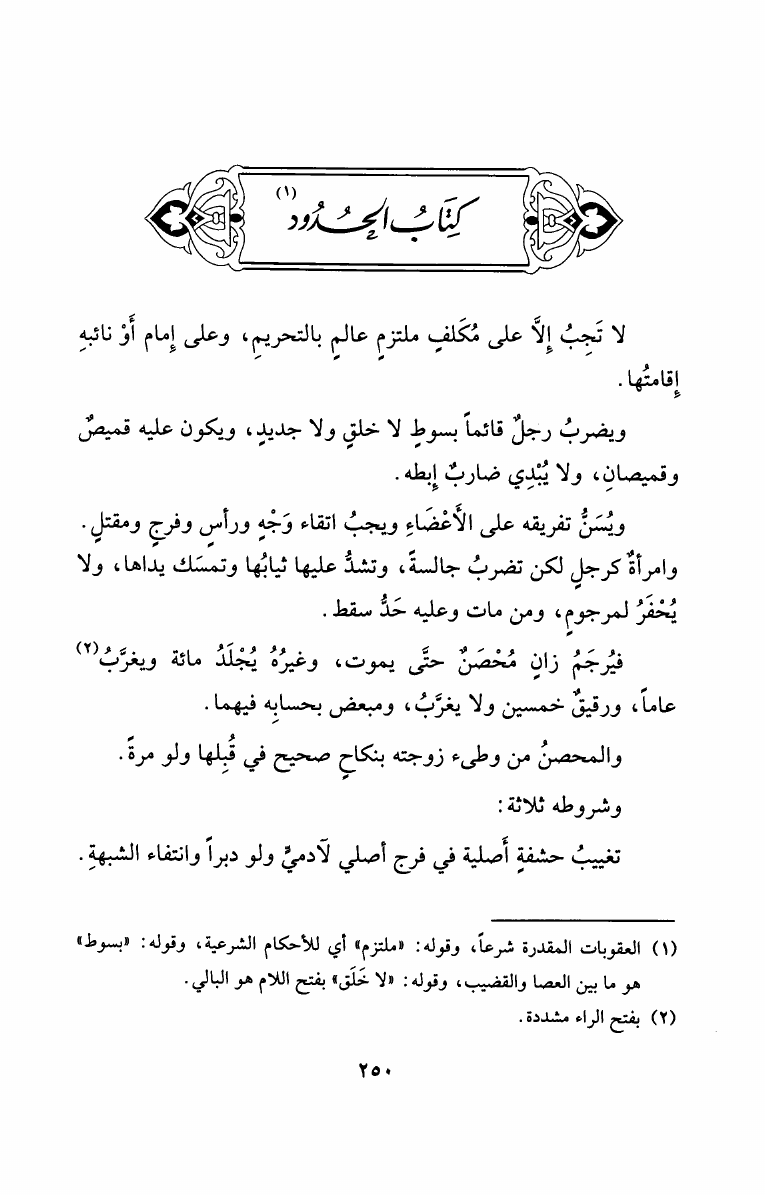 كِتَابُ الحُدُود(١)
لا تَجِبُ إلَّا على مُكَلفٍ ملتزمٍ عالمٍ بالتحريمِ، وعلى إمام أَوْ نائبهِ
إِقامتُها.
ويضربُ رجلٌ قائماً بسوطٍ لا خلقٍ ولا جديدٍ، ويكون عليه قميصٌ
وقميصانِ، ولا يُبْدِي ضاربٌ إبطه.
ويُسَنُّ تفريقه على الأَعْضَاءِ ويجبُ اتقاء وَجْهٍ ورأسٍ وفرجٍ ومقتلٍ.
وامرأةٌ كرجلٍ لكن تضربُ جالسةً، وتشدُّ عليها ثيابُها وتمسَك يداها، ولا
يُحْفَرُ لمرجومٍ، ومن مات وعليه حَدُّ سقط.
فيُرجَمُ زانٍ مُحْصَنٌ حتَّى يموت، وغيرُهُ يُجْلَدُ مائة ويغرَّبُ(٢)
عاماً، ورقيقٌ خمسين ولا يغرَّبُ، ومبعض بحسابِه فيهما.
والمحصنُ من وطىء زوجته بنكاحٍ صحيح في قُبِلها ولو مرةً.
وشروطه ثلاثة:
تغييبُ حشفةٍ أَصلية في فرج أصلي لآدميٍّ ولو دبراً وانتفاء الشبهةِ.
(١) العقوبات المقدرة شرعاً، وقوله: «ملتزم» أي للأحكام الشرعية، وقوله: «بسوط»
هو ما بين العصا والقضيب، وقوله: «لا خَلَق» بفتح اللام هو البالي.
(٢) بفتح الراء مشددة.
٢٥٠